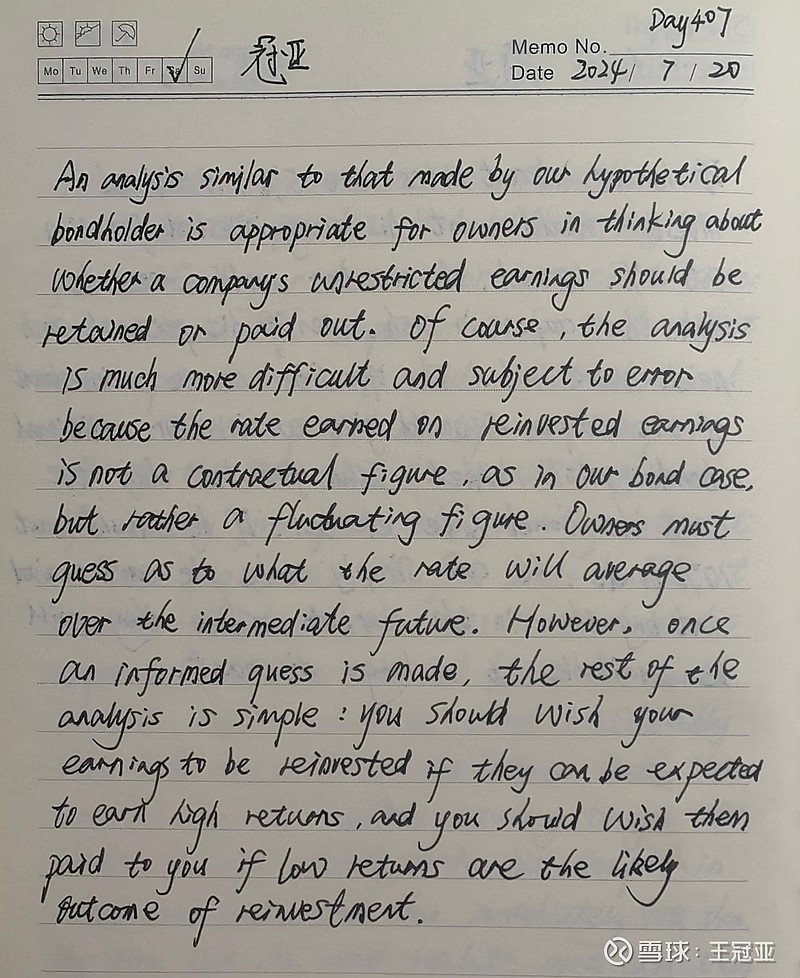 Day407
冠亚
Memo No.
Mo Tu We Th Fr Sa Su
Date 2024/ 7 / 20
An analysis similar to that made by our hypothetical
bondholder is appropriate for owners in thinking about
whether a company's unrestricted earnings should be
retained or paid out. Of course, the analysis
is much more difficult and subject to error
because the rate earned on reinvested earnings
is not a contractual figure, as in our bond case,
but rather a fluctuating figure. Owners must
guess as to what the rate will average
over the intermediate future. However, once
an informed guess is made, the rest of the
analysis is simple: you should wish your
earnings to be reinvested if they can be expected
to earn high returns, and you should wish them
paid to you if low returns are the likely
outcome of reinvestment.
雪球:王冠亚